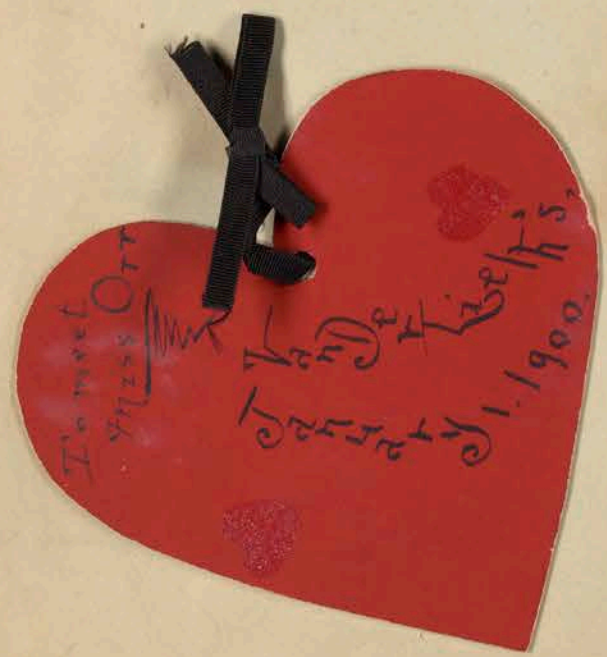 To meet
Miss Orr
VanDerLieth's,
January 1. 1900.